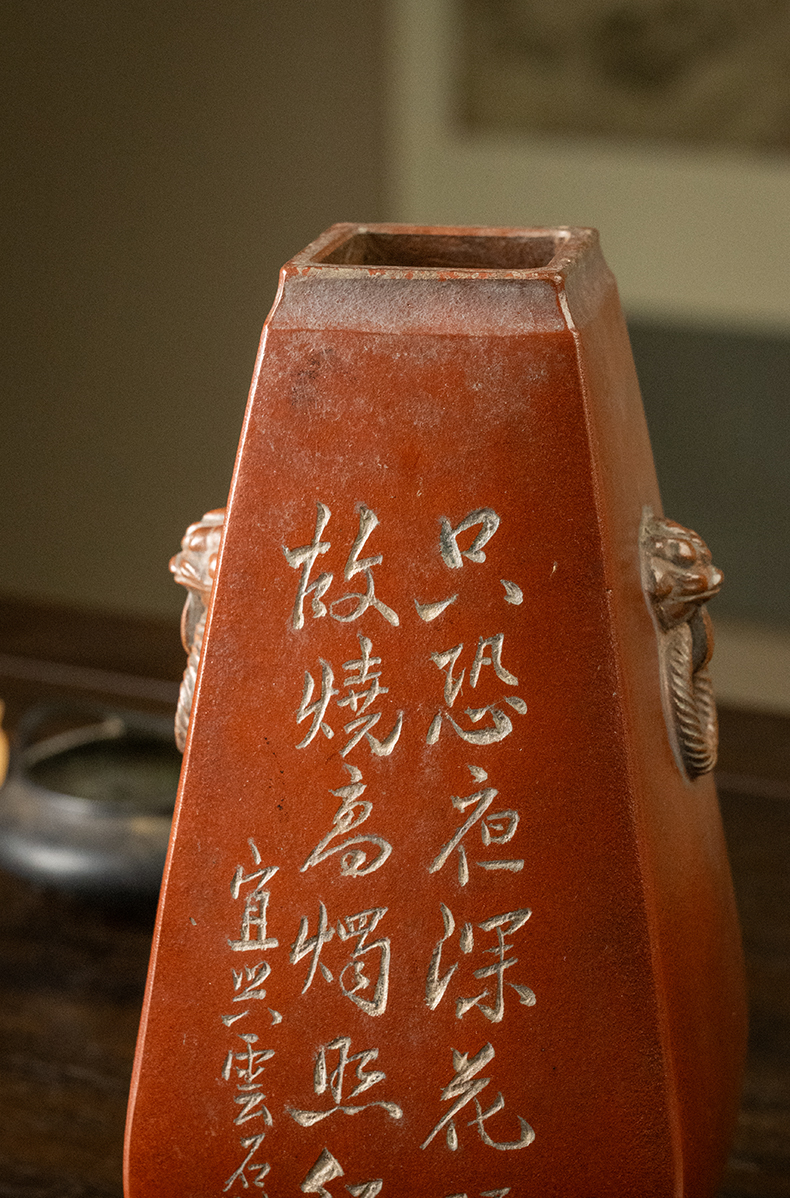 只恐夜深花
故燒高燭照紅
宜興雲石